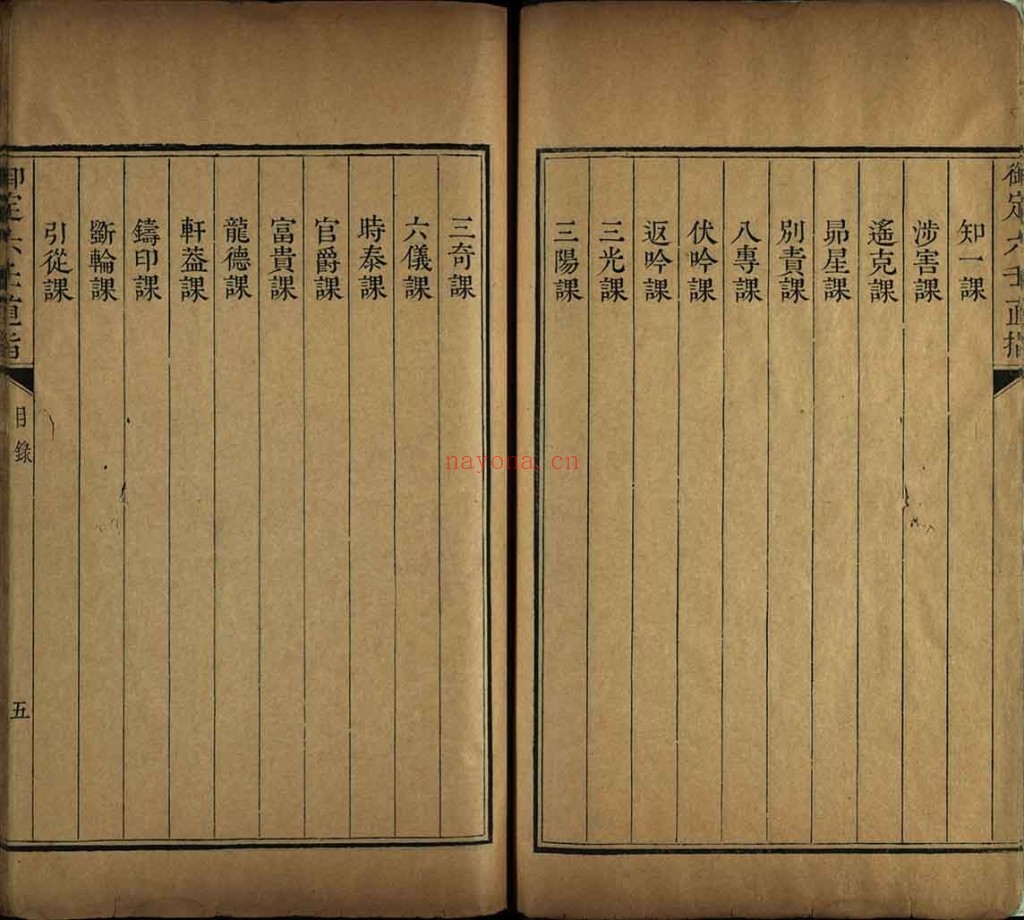 御定六壬直指
知一課
涉害課
遙克課
昴星課
別責課
八專課
伏吟課
返吟課
三光課
三陽課
三奇課
六儀課
時泰課
官爵課
富貴課
龍德課
軒葢課
鑄印課
斲輪課
引從課
御定六壬直指
目錄
五
nayona.cn